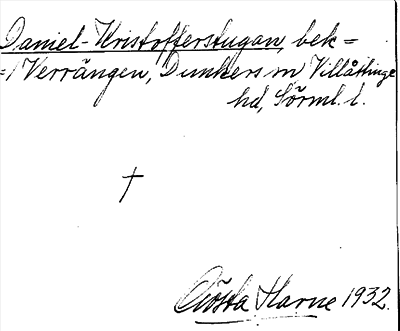 Daniel-Kristofferstugan, bek=
=/ Verrängen, Dunkers sn Villåttinge
hd, Sörml. l.
†
Gösta Harne 1932.